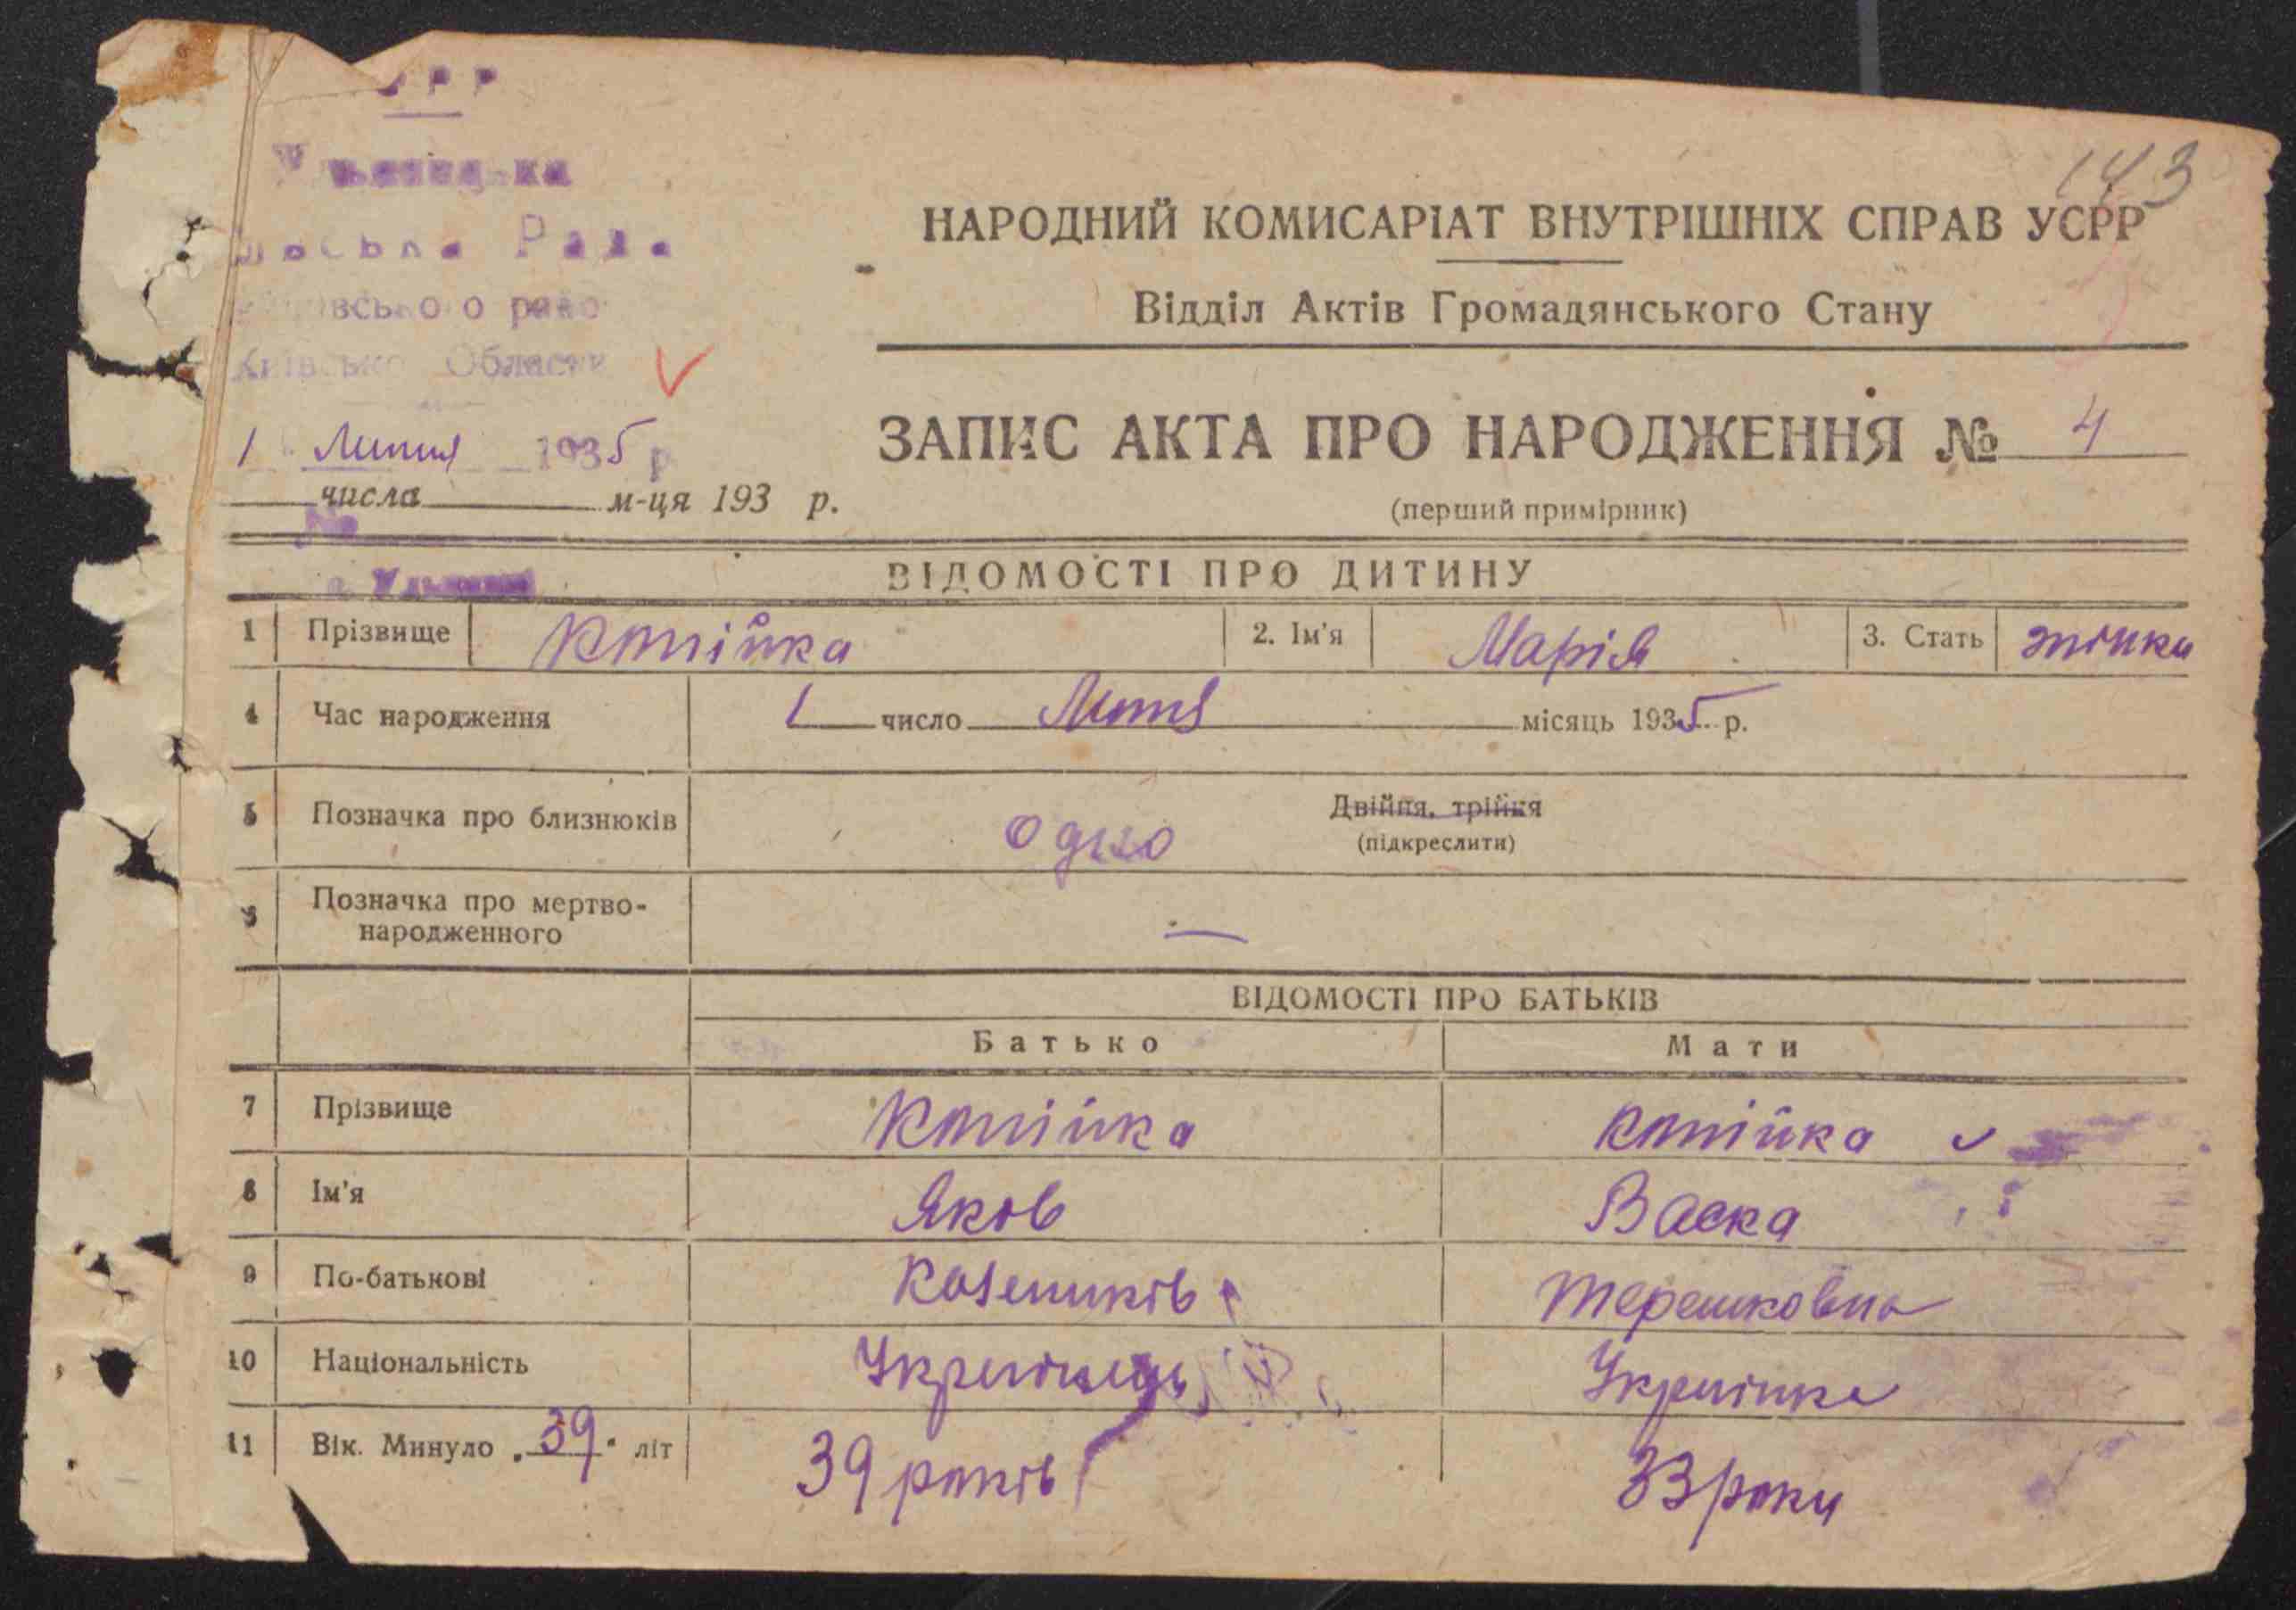 143
Рада
Області
1 Липня 1935 р
числа м-ця 193 р.
№
НАРОДНИЙ КОМИСАРІАТ ВНУТРІШНІХ СПРАВ УСРР
Відділ Актів Громадянського Стану
ЗАПИС АКТА ПРО НАРОДЖЕННЯ № 4
(перший примірник)
ВІДОМОСТІ ПРО ДИТИНУ
1 Прізвище Копійка 2. Ім'я Марія 3. Стать жінка
4 Час народження 1 число Липня місяць 1935 р.
5 Позначка про близнюків одно Двійня, трійня
(підкреслити)
6 Позначка про мертво-
народженного —
ВІДОМОСТІ ПРО БАТЬКІВ
Батько Мати
7 Прізвище Копійка Копійка
8 Ім'я Яків Васка
9 По-батькові Терешковна
10 Національність Українець Українка
11 Вік. Минуло „39" літ 39 років 33 роки